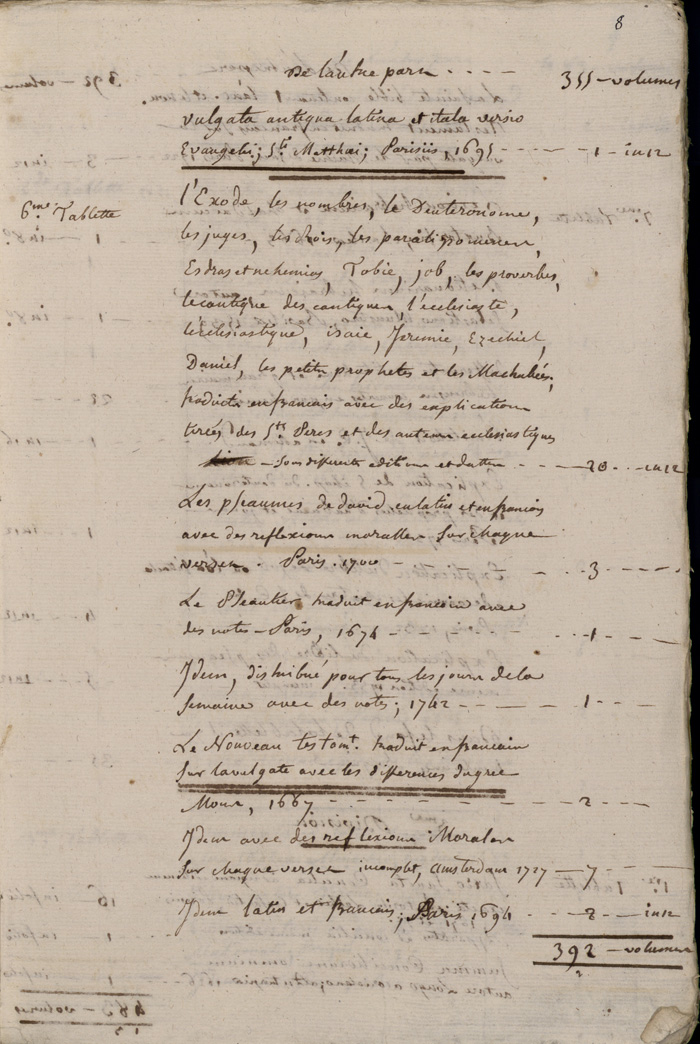 8
De l'autre part - - - - 355 - volumes
vulgata antiqua latina et itala versio
Evangelii; Sti. Matthæi; Parisiis 1695 - - - - 1 - in 12
6me. Tablette l'Exode, les nombres, le Deuteronôme,
les juges, les rois, les paralipomenes,
Esdras et nehemias, Tobie, job, les proverbes,
le cantique des cantiques, l'ecclesiaste,
l'ecclesiastique, isaïe, Jeremie, Ezechiel,
Daniel, les petits prophetes et les Machabées,
traduits en francais avec des explications
tirées des Sts Peres et des auteurs ecclesiastiques
- Sous differents editions et dattes - - - 20 - - - in 12
Les pseaumes de david en latin et en francois
avec des reflexions moralles sur chaque
verset. Paris. 1700 - - - - 3 - - -
Le Pseautier traduit en francois avec
des notes - Paris, 1674 - - - - 1 - - -
Idem, distribué pour tous les jours de la
semaine avec des notes; 1742 - - - - 1 - - -
Le Nouveau testamt. traduit en francais
sur la vulgate avec les differences du grec
Mons, 1667 - - - - 2 - - -
Idem avec des reflexions Morales
sur chaque verset incomplet, amsterdam 1727 - 7 - - -
Idem latin et francais; Paris, 1694 - - - 2 - - - in 12
392 - volumes